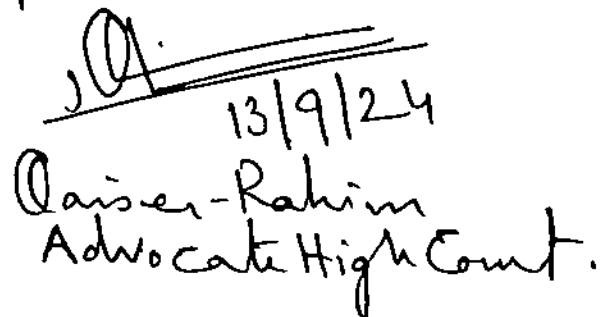 13/9/24
Qaiser-Rahim
Advocate High Court.